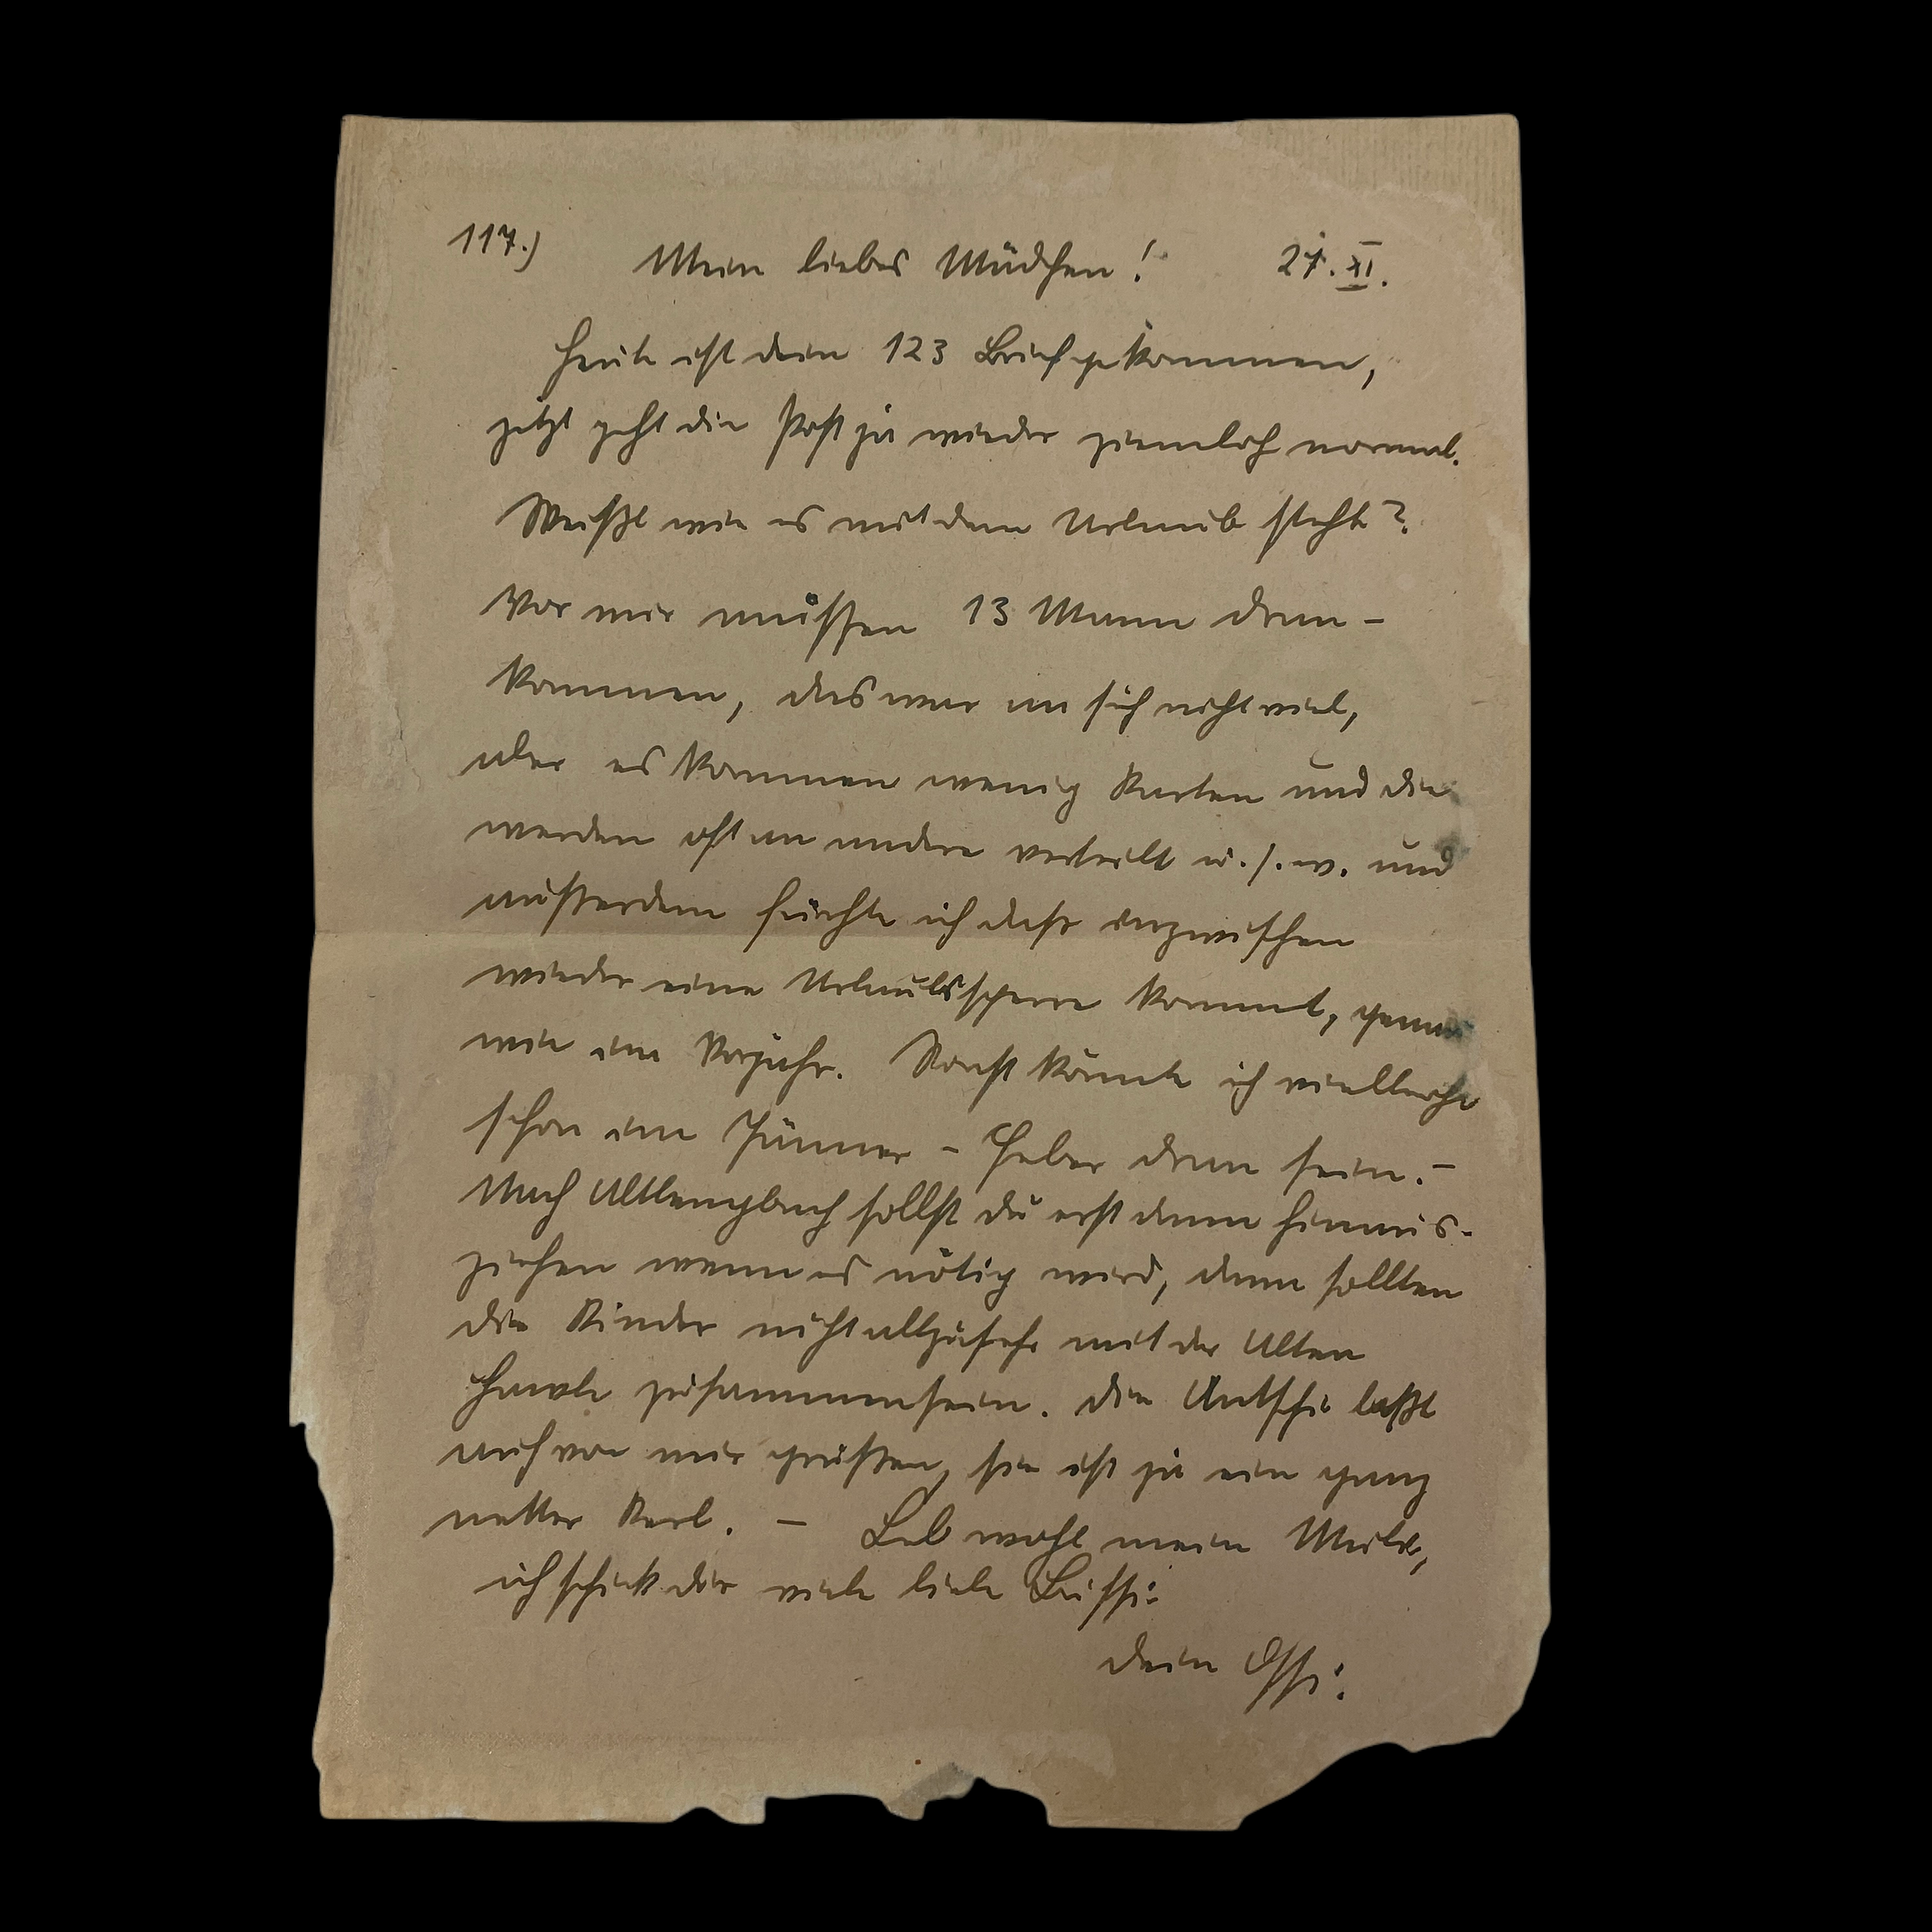 117.) Mein liebes Mädchen! 27.XI.
Heute ist dein 123 Brief gekommen,
jetzt geht die Post ja wieder ziemlich normal.
Weißt wie es mit dem Urlaub steht?
Vor mir müssen 13 Mann dran-
kommen, das war an sich nicht viel,
aber es kommen wenig Karten und die
werden oft an andere verteilt u.s.w. und
außerdem fürchte ich daß inzwischen
wieder eine Urlaubssperre kommt, genau
wie im Vorjahr. Sonst könnte ich vielleicht
schon im Jänner - Feber dran sein. -
Nach Altlengbach sollst du erst dann hinaus-
ziehen wenn es nötig wird, dann sollten
die Kinder nicht allzusehr mit der Alten
zusammensein. Die laßt
auch von mir grüßen, sie ist ja ein ganz
netter Kerl. - Leb wohl mein
ich schick dir viele liebe Bussi:
dein Ossi: